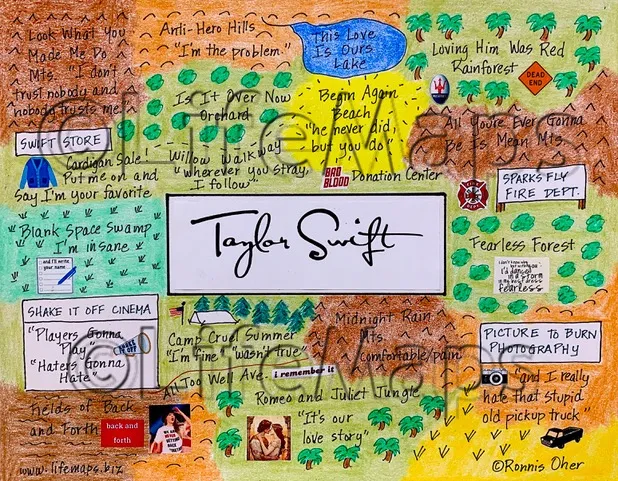 Look What You
Made Me Do
Mts. "I don't
trust nobody and
nobody trusts me"
Anti-Hero Hills
"I'm the problem."
This Love
Is Ours
Lake
Loving Him Was Red
Rainforest
DEAD
END
Is It Over Now
Orchard
Begin Again
Beach
"he never did,
but you do"
All You're Ever Gonna
Be Is Mean Mts.
©LifeMaps
SWIFT STORE
Cardigan Sale!
Put me on and
Say I'm your favorite
Willow Walkway
"wherever you stray,
I follow"
BAD
BLOOD
Donation Center
SPARKS FLY
FIRE DEPT.
Blank Space Swamp
I'm insane
and I'll write
your name
Taylor Swift
Fearless Forest
I'd dance
in a storm
in my best dress
fearless
SHAKE IT OFF CINEMA
"Players Gonna
Play"
"Haters Gonna
Hate"
SHAKE
IT OFF
Camp Cruel Summer
"I'm fine" (wasn't true)
Midnight Rain
Mts.
Comfortable/pain
PICTURE TO BURN
PHOTOGRAPHY
"and I really
hate that stupid
old pickup truck"
©LifeMaps
All Too Well Ave.
i remember it
Romeo and Juliet Jungle
"It's our
love story"
Fields of Back
and Forth
back and
forth
www.lifemaps.biz
©Ronnis Oher